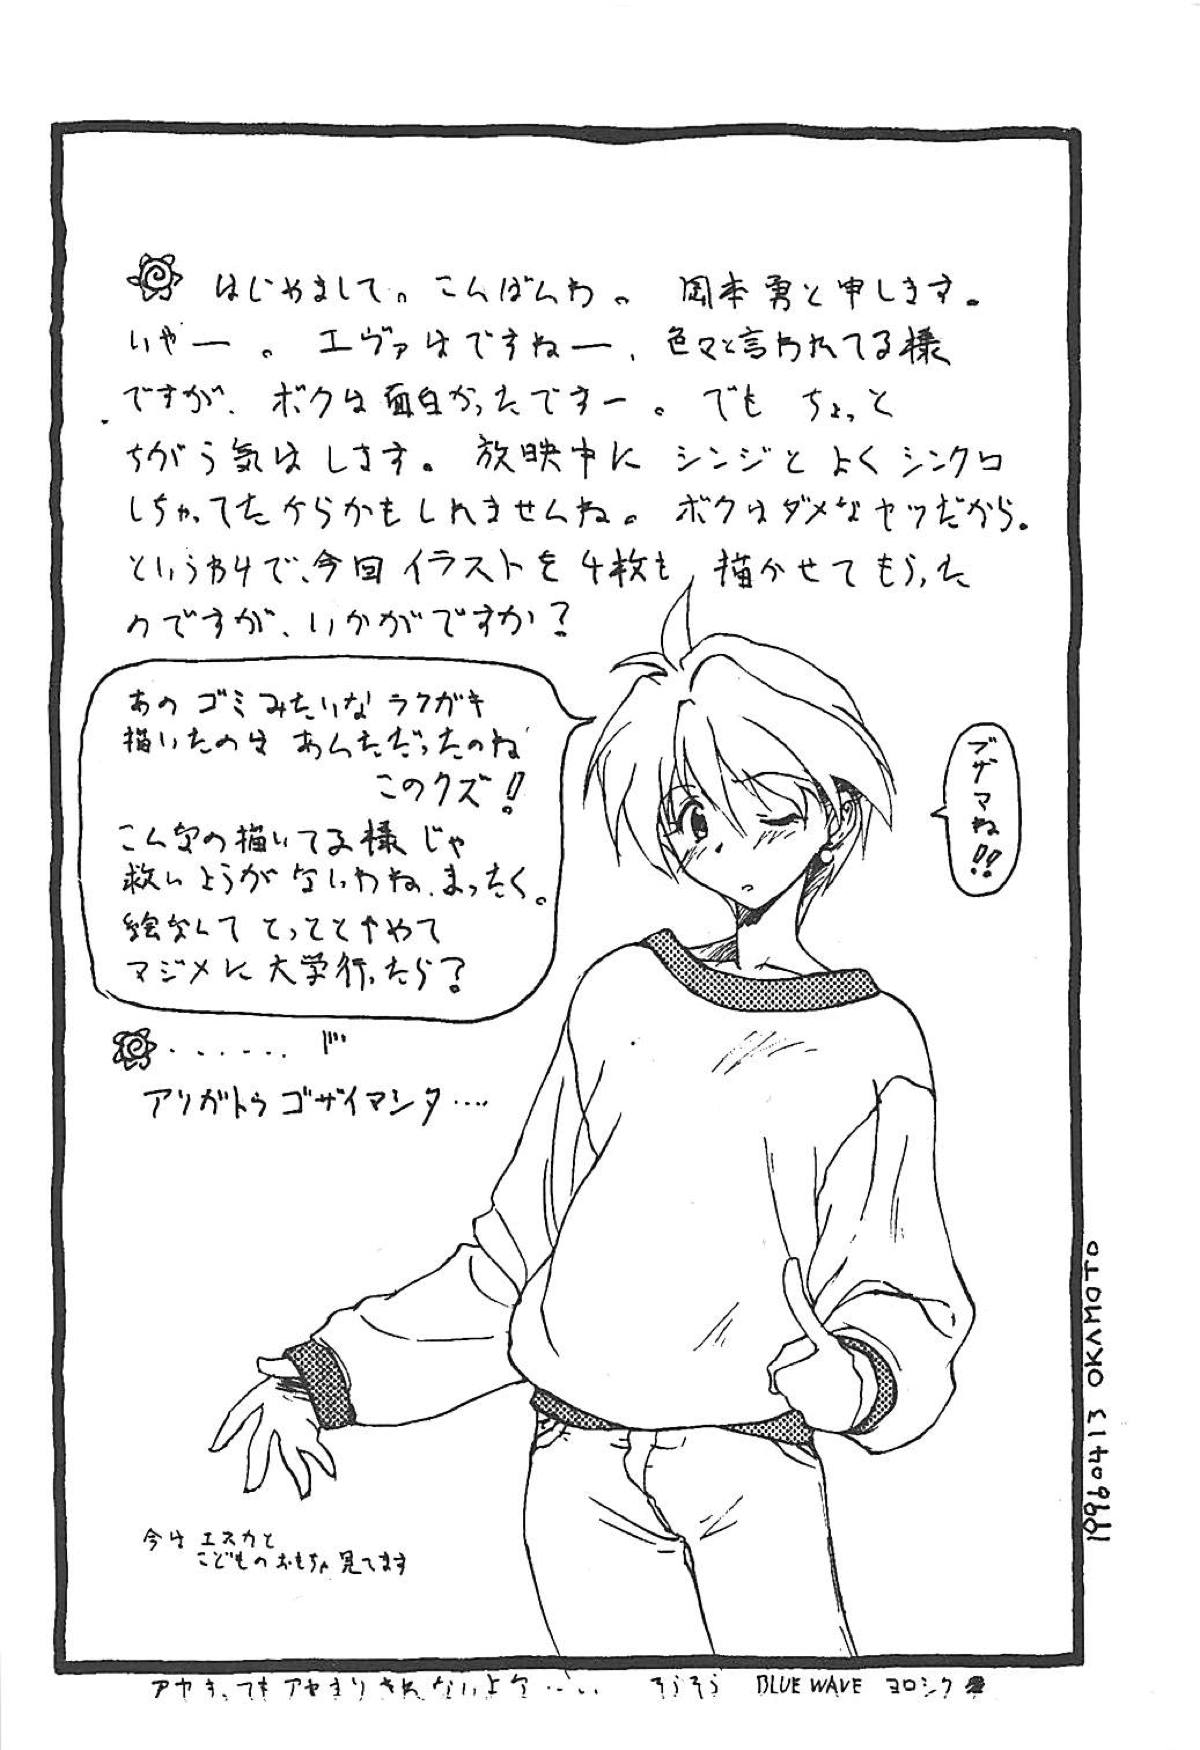 はじめまして。こんばんわ。岡本勇と申します。
いやー。エヴァはですねー、色々と言われてる様
ですが、ボクは面白かったですー。でも ちょっと
ちがう気はします。放映中に シンジと よく シンクロ
しちゃってたからかもしれませんね。ボクはダメなヤツだから。
というわけで、今回 イラストを 4枚も 描かせて もらった
のですが、いかがですか?
あの ゴミみたいな ラクガキ
描いたのは あんただったのね
このクズ!
こんなの描いてる様 じゃ
救いようが ないわね、まったく。
絵なんて とっととやめて
マジメに 大学行ったら?
ブザマね!!
・・・・・・
アリガトウ ゴザイマシタ・・・・
今は エスカと
こどものおもちゃ見てます
19960413 OKAMOTO
アヤまってもアヤまりきれないよな・・・・ そうそう BLUE WAVE ヨロシク